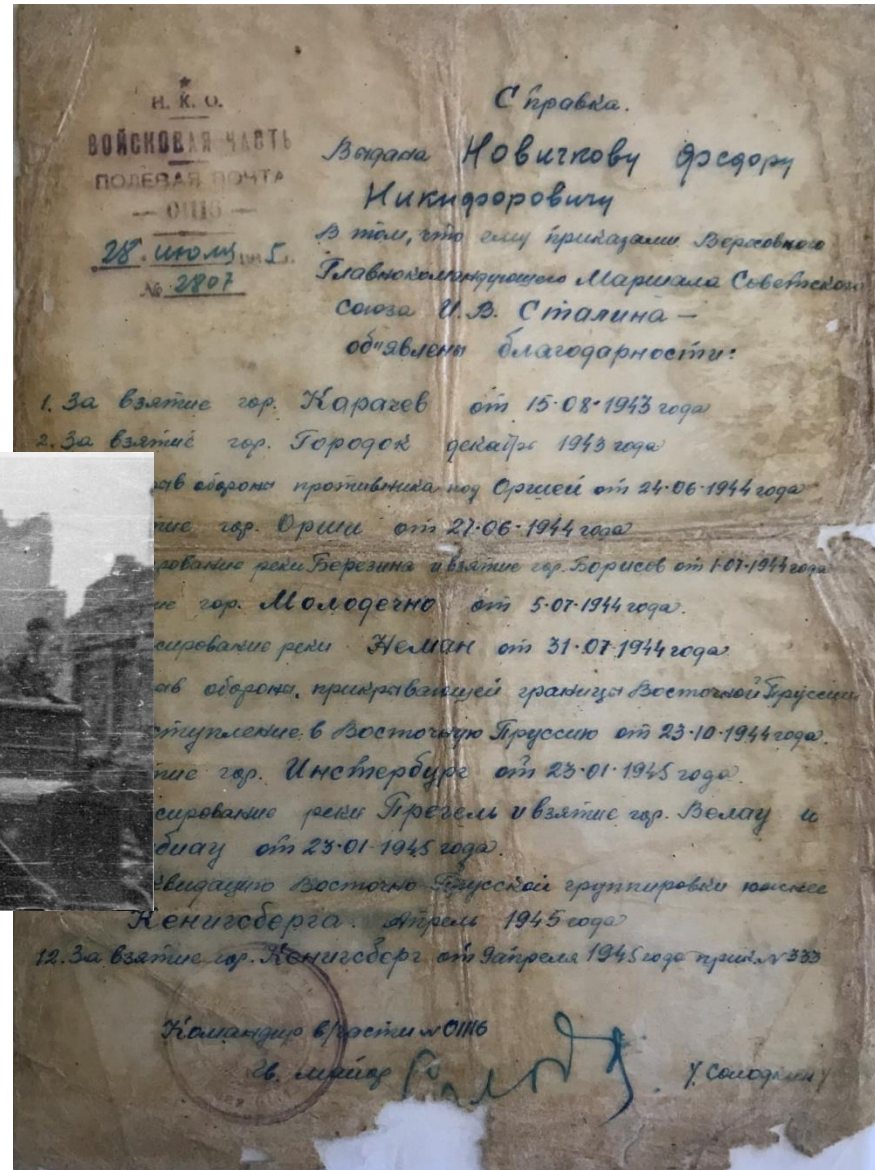 Н. К. О.
ВОЙСКОВАЯ ЧАСТЬ
ПОЛЕВАЯ ПОЧТА
— 01116 —
28. июля 1945 г.
№ 2807
Справка.
Выдана Новичкову Федору
Никифоровичу
В том, что ему приказами Верховного
Главнокомандующего Маршала Советского
союза И.В. Сталина —
об"явлены благодарности:
1. За взятие гор. Карачев от 15·08·1943 года
2. За взятие гор. Городок декабрь 1943 года
оборона противника под Оршей от 24·06·1944 года
гор. Орши от 27·06·1944 года
реки Березина и взятие гор. Борисов от 1·07·1944 года
гор. Молодечно от 5·07·1944 года.
сирование реки Неман от 31·07·1944 года
оборона, прикрывающей границы Восточной Пруссии
ступление в Восточную Пруссию от 23·10·1944 года.
гор. Инстербург от 23·01·1945 года.
сирование реки Прегель и взятие гор. Велау и
биау от 23·01·1945 года.
квидацию Восточно Прусской группировки южнее
Кенигсберга. Апрель 1945 года
12. За взятие гор. Кенигсберг от 9 апреля 1945 года прик. № 333
Командир в/части № 01116
Гв. майор